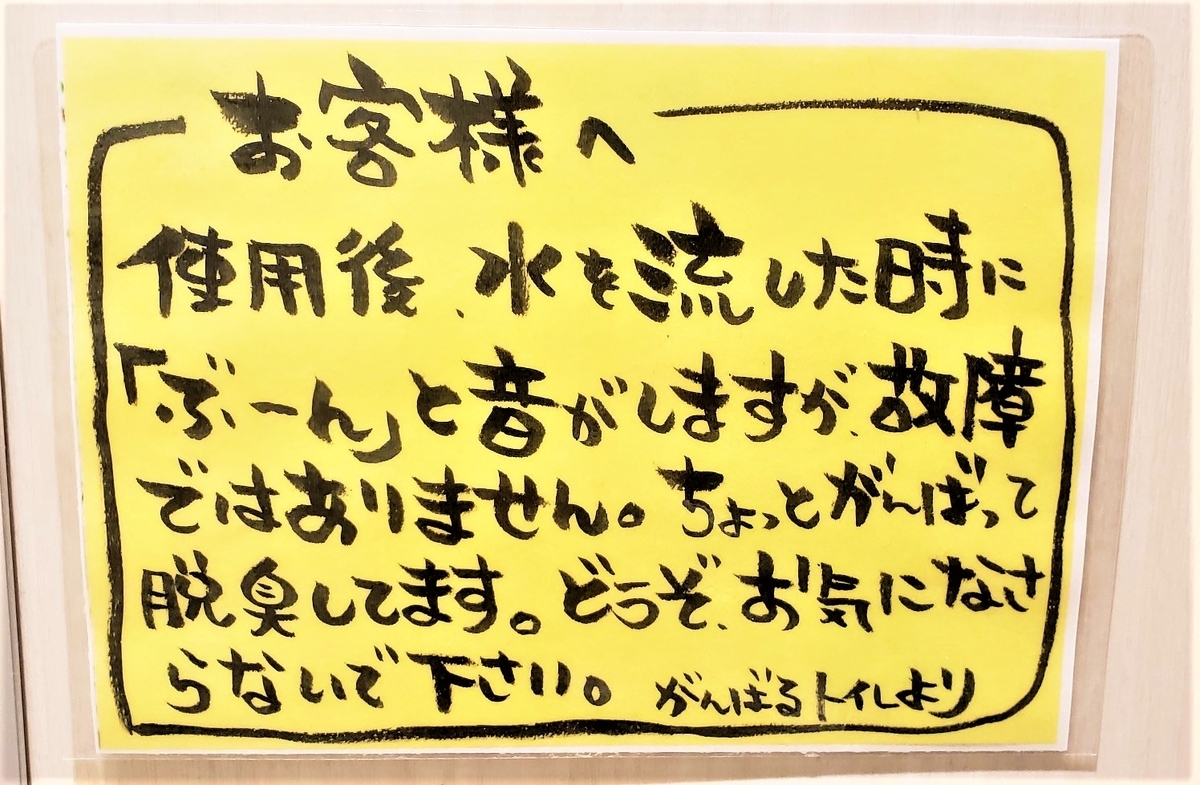 お客様へ
使用後、水を流した時に
「ぶーん」と音がしますが、故障
ではありません。ちょっとがんばって
脱臭してます。どうぞ、お気になさ
らないで下さい。がんばるトイレより